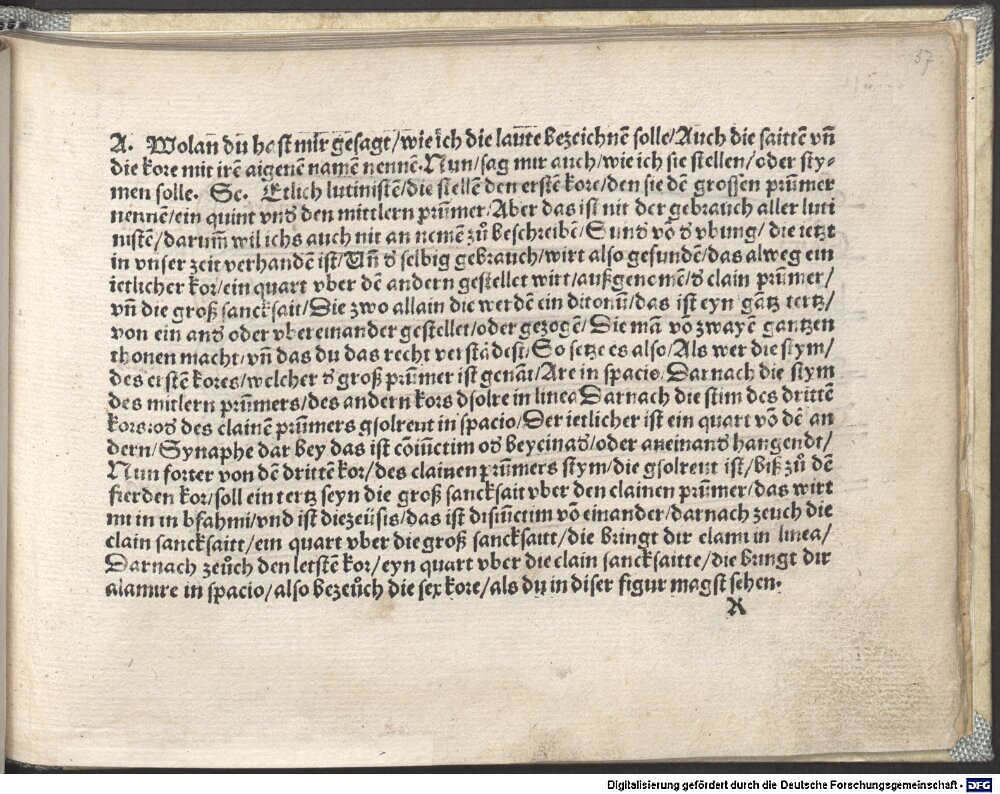 57
A. Wolan du hast mir gesagt/wie ich die laute bezeichnē solle/Auch die saittē vñ
die kore mit irē aigenē namē nennē. Nun/sag mir auch/wie ich sie stellen/oder sty-
men solle. Se. Etlich lutinistē/die stellē den erstē kore/den sie dē grossen prūmer
nennē/ein quint vnd den mittlern prūmer/Aber das ist nit der gebrauch aller luti
nistē/darum̄ wil ichs auch nit an nemē zů beschreibē/Sund vō d vbung/die ietzt
in vnser zeit verhandē ist/Vñ d selbig gebrauch/wirt also gefundē/das alweg ein
ietlicher kor/ein quart vber dē andern gestellet wirt/außgenomē/d clain prūmer/
vñ die groß sancksait/Die zwo allain die werdē ein ditonū/das ist eyn gātz tertz/
von ein and oder vber einander gestellet/oder gezogē/Die mā vo zwayē gantzen
thonen macht/vñ das du das recht verstādest/So setze es also/Als wer die stym/
des erstē kores/welcher d groß prūmer ist genāt/Are in spacio/Darnach die stym
des mitlern prūmers/des andern kors dsolre in linea Darnach die stim des drittē
kors:os des clainē prūmers gsolreut in spacio/Der ietlicher ist ein quart vō dē an
dern/Synaphe dar bey das ist cōiūctim os beyeinād/oder aneinand hangendt/
Nun forter von dē drittē kor/des clainen prūmers stym/die gsolreut ist/biß zů dē
fierden kor/soll ein tertz seyn die groß sancksait vber den clainen prūmer/das wirt
nu in in bfahmi/vnd ist diezeüsis/das ist disiūctim vō einander/darnach zeuch die
clain sancksaitt/ein quart vber die groß sancksaitt/die bringt dir elami in linea/
Darnach zeůch den letstē kor/eyn quart vber die clain sancksaitte/die bringt dir
alamire in spacio/also bezeůch die sex kore/als du in diser figur magst sehen.
K
Digitalisierung gefördert durch die Deutsche Forschungsgemeinschaft - DFG